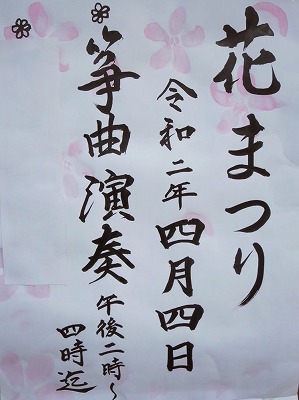 花まつり
令和二年四月四日
箏曲演奏
午後二時～
四時迄